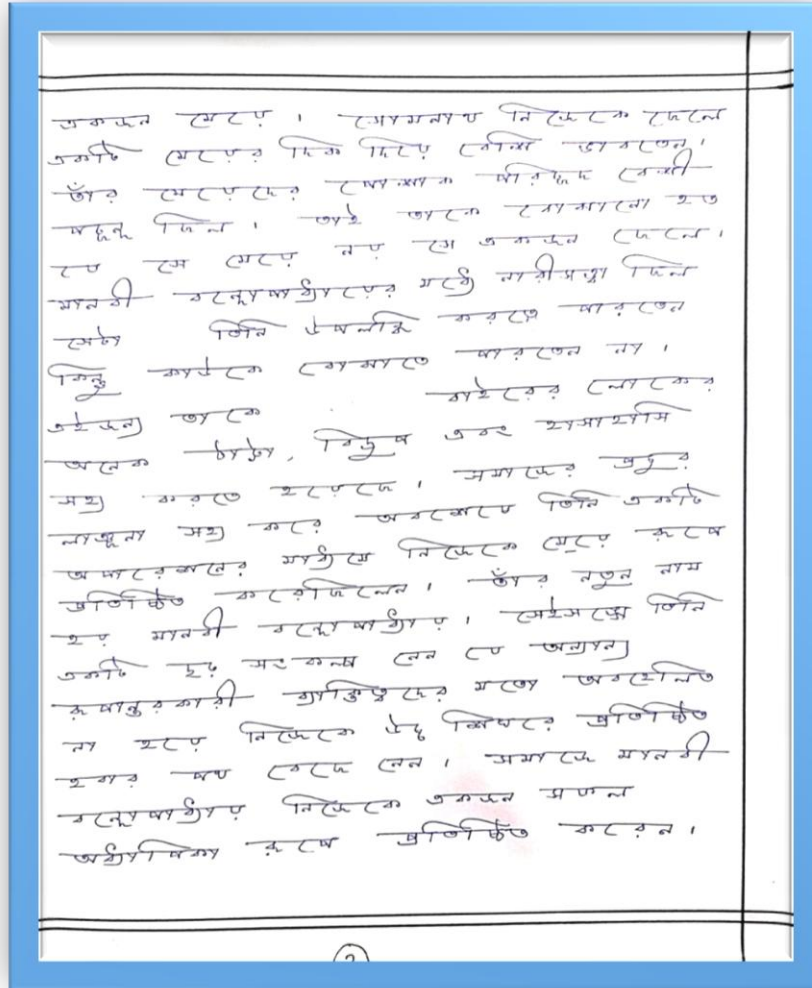 একজন মেয়ে । সোমনাথ নিজেকে ছেলে
একটি মেয়ের দিক দিয়ে বেশি ভাবতেন।
তাঁর মেয়েদের পোশাক পরিচ্ছদ বেশী
পছন্দ ছিল । তাই তাকে বোঝানো হত
যে সে মেয়ে নয় সে একজন ছেলে।
মানবী বন্দ্যোপাধ্যায়ের মধ্যে নারীসত্ত্বা ছিল
সেটা তিনি উপলব্ধি করতে পারতেন
কিন্তু কাউকে বোঝাতে পারতেন না ।
এইজন্য তাকে বাইরের লোকের
অনেক ঠাট্টা, বিদ্রুপ এবং হাসাহাসি
সহ্য করতে হয়েছে । সমাজের প্রচুর
লাঞ্ছনা সহ্য করে অবশেষে তিনি একটি
অপারেশনের মাধ্যমে নিজেকে মেয়ে রূপে
প্রতিষ্ঠিত করেছিলেন । তাঁর নতুন নাম
হয় মানবী বন্দ্যোপাধ্যায় । সেইসঙ্গে তিনি
একটি দৃঢ় সংকল্প নেন যে অন্যান্য
রূপান্তরকামী ব্যাক্তিত্বদের মতো অবহেলিত
না হয়ে নিজেকে উচ্চ শিখরে প্রতিষ্ঠিত
হবার পথ বেছে নেন । সমাজে মানবী
বন্দ্যোপাধ্যায় নিজেকে একজন সফল
অধ্যাপিকা রূপে প্রতিষ্ঠিত করেন ।